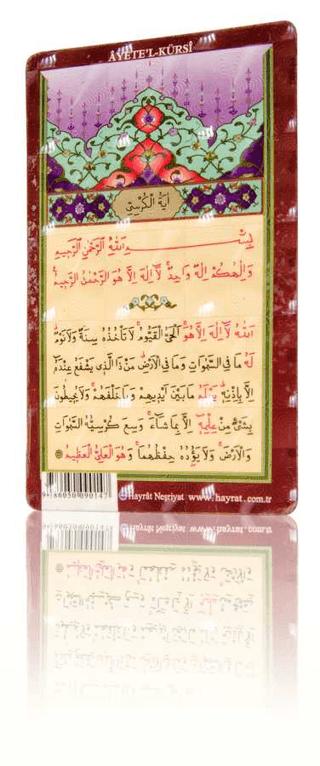 ÂYETE'L-KÜRSÎ
اٰيَةُ الْكُرْسِيّ
بِسْمِ اللّٰهِ الرَّحْمٰنِ الرَّحِيمِ
وَاِلٰهُكُمْ اِلٰهٌ وَاحِدٌ لَٓا اِلٰهَ اِلَّا هُوَ الرَّحْمٰنُ الرَّحِيمُ
اَللّٰهُ لَٓا اِلٰهَ اِلَّا هُوَ اَلْحَيُّ الْقَيُّومُ لَا تَأْخُذُهُ سِنَةٌ وَلَا نَوْمٌ
لَهُ مَا فِي السَّمٰوَاتِ وَمَا فِي الْاَرْضِ مَنْ ذَا الَّذِي يَشْفَعُ عِنْدَهُٓ
اِلَّا بِاِذْنِهِ يَعْلَمُ مَا بَيْنَ اَيْدِيهِمْ وَمَا خَلْفَهُمْ وَلَا يُحِيطُونَ
بِشَيْءٍ مِنْ عِلْمِهِٓ اِلَّا بِمَا شَٓاءَ وَسِعَ كُرْسِيُّهُ السَّمٰوَاتِ
وَالْاَرْضَ وَلَا يَؤُدُهُ حِفْظُهُمَا وَهُوَ الْعَلِيُّ الْعَظِيمُ
Hayrât Neşriyat www.hayrat.com.tr